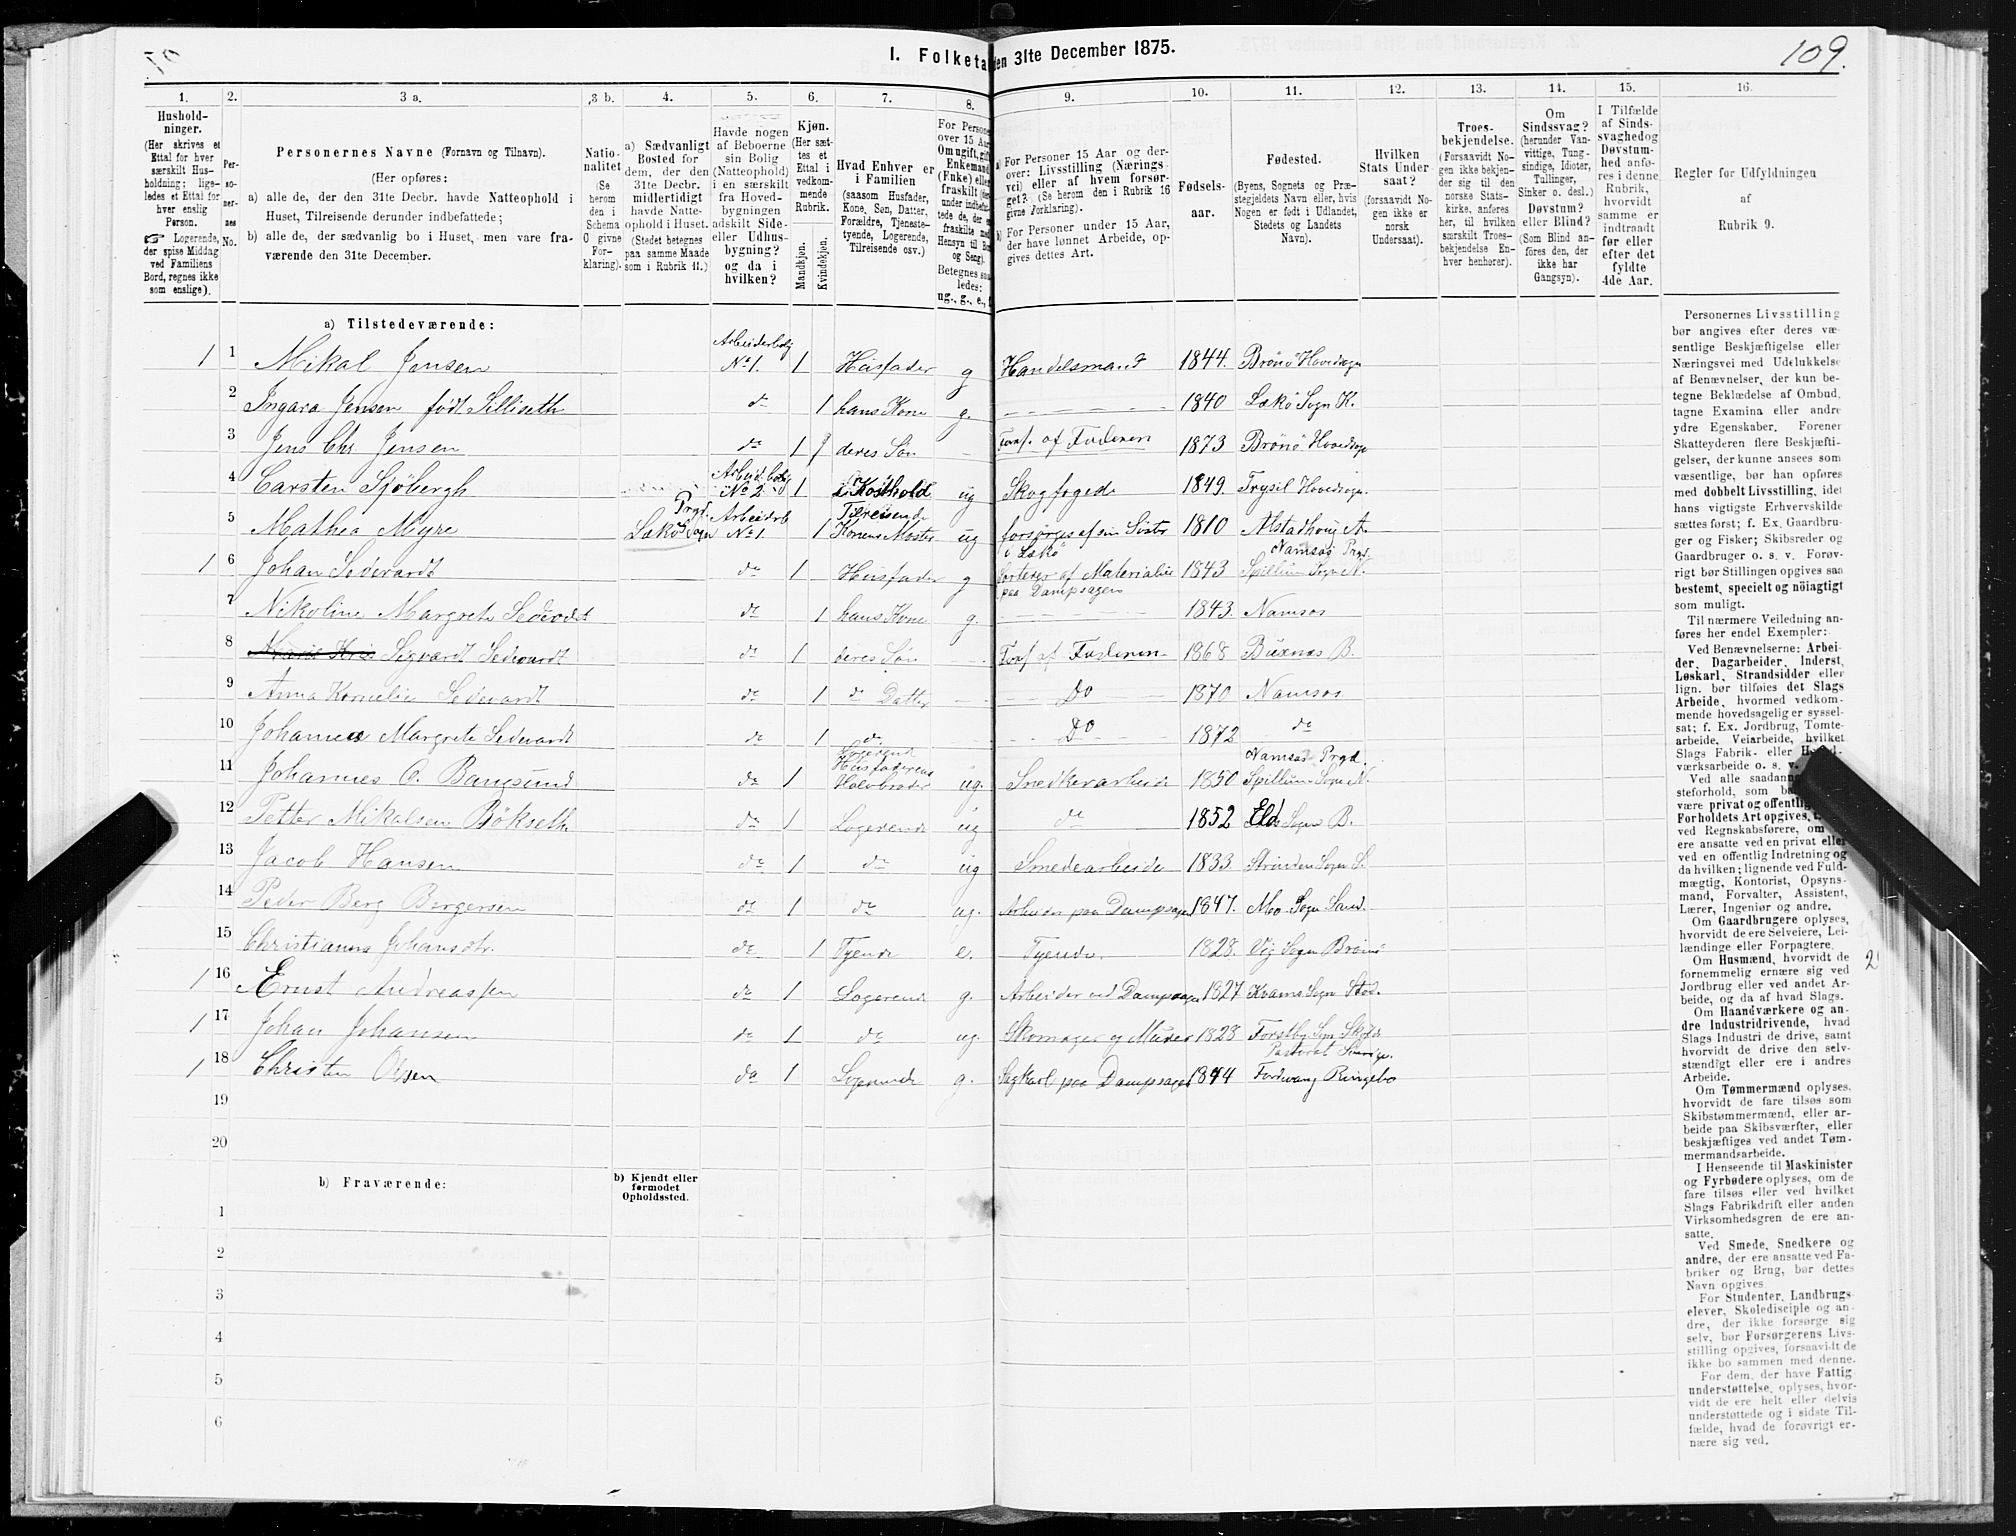 I. Folketa en 31te December 1875.
109.
1. 2. 3 a. 3 b. 4. 5. 6. 7. 8. 9. 10. 11. 12. 13. 14. 15. 16.
Husholdninger. (Her skrives et Ettal for hver særskilt Husholdning; ligeledes et Ettal for hver enslig Person. ☞ Logerende, der spise Middag ved Familiens Bord, regnes ikke som enslige).
Personernes No.
Personernes Navne (Fornavn og Tilnavn).
(Her opføres:
a) alle de, der den 31te Decbr. havde Natteophold i Huset, Tilreisende derunder indbefattede;
b) alle de, der sædvanlig bo i Huset, men vare fraværende den 31te December.
Nationalitet (Se herom den i Schema C givne Forklaring).
a) Sædvanligt Bosted for dem, der den 31te Decbr. midlertidigt havde Natteophold i Huset. (Stedet betegnes paa samme Maade som i Rubrik 11.)
Havde nogen af Beboerne sin Bolig (Natteophold) i en særskilt fra Hovedbygningen adskilt Side- eller Udhusbygning? og da i hvilken?
Kjøn. (Her sættes et Ettal i vedkommende Rubrik. Mandkjøn. Kvindekjøn.
Hvad Enhver er i Familien (saasom Husfader, Kone, Søn, Datter, Forældre, Tjenestetyende, Logerende, Tilreisende osv.).
For Persone over 15 Aar: Om ugift, gift, Enkemand (Enke) eller fraskilt
Betegnes saaledes: ug., g., e.,
a) For Personer 15 Aar og derover: Livsstilling (Næringsvei) eller af hvem forsørget? (Se herom den i Rubrik 16 givne Forklaring).
b) For Personer under 15 Aar, der have lønnet Arbeide, opgives dettes Art.
Fødselsaar.
Fødested. (Byens, Sognets og Præstegjeldets Navn eller, hvis Nogen er født i Udlandet, Stedets og Landets Navn).
Hvilken Stats Undersaat? (forsaavidt Nogen ikke er norsk Undersaat).
Troesbekjendelse. (Forsaavidt Nogen ikke bekjender sig til den norske Statskirke, anføres her, til hvilken særskilt Troesbekjendelse Enhver henhører).
Om Sindssvag? (herunder Vanvittige, Tungsindige, Idioter, Tullinger, Sinker o. desl.). Døvstum? eller Blind? (Som Blind anføres den, der ikke har Gangsyn).
I Tilfælde af Sindssvaghed og Døvstumhed anføres i denne Rubrik, hvorvidt samme er indtraadt før eller efter det fyldte 4de Aar.
Regler for Udfyldningen af Rubrik 9.
a) Tilstedeværende:
1 1 Mikal Jensen Arbeiderbolg No 1. 1 Husfader g Handelsmand 1844. Brønø Hovedsogn
2 Ingara Jensen født Silliseth do 1 hans Kone g. 1840 Lekø Sogn K.
3 Jens Chr Jensen do 1 deres Søn Fors. af Faderen 1873 Brønø Hovedsogn
4 Carsten Sjøbergh Arbeidbolig No 2 1 i Kosthold ug Skogfoged 1849. Trysil Hovedsogn.
5 Mathea Myre Lekø Sogn Prgd. Arbeiderb No 1. 1 Tilreisende Konens Moster ug forsørges af sin Søster i Lekø 1810 Alstadhoug A.
1 6 Johan Sedevardt do 1 Husfader g Sorterer af Materialier paa Dampsagen 1843 Namsos Prgd. Spillum Sogn N.
7 Nikoline Margrete Sedevardt do 1 hans Kone g. 1843. Namsos
8 Sigvardt Sedevardt do 1 deres Søn Fors af Faderen 1868 Buxnæs B.
9 Anna Kornelie Sedevardt do 1 do Datter Do 1870 Namsos
10 Johanna Margrete Sedevardt do 1 do Do 1872 do
11 Johannes O. Bangsund do 1 Logerend Husfaderens Halvbroder ug. Snedkerarbeide 1850 Namsos Prgd. Spillum Sogn N.
12 Petter Mikalsen Bøkseth do 1 Logerende ug do 1852 Eld Sogn B.
13 Jacob Hansen do 1 do ug Smedearbeide 1833 Strinden Sogn S.
14 Peder Berg Bergersen do 1 do ug. Arbeider paa Dampsagen 1847. Mo Sogn Sand.
15 Christianna Johansdtr. do 1 Tyende e. Tyende. 1828. Vig Sogn Brønø
1 16 Ernst Andreassen do 1 Logerend g. Arbeider ved Dampsagen 1827 Kvams Sogn Stod.
1 17 Johan Johansen do 1 do ug. Skomager og Murer 1828 Forstby Sgn Skøfde Pastorat Sverige.
1 18 Christen Olsen do 1 Logerende g. Sagkarl paa Dampsagen 1844 Fordvang Ringebo
19
20
b) Fraværende:
b) Kjendt eller formodet Opholdssted.
1
2
3
4
5
6
Personernes Livsstilling bør angives efter deres væsentlige Beskjæftigelse eller Næringsvei med Udelukkelse af Benævnelser, der kun betegne Beklædelse af Ombud, tagne Examina eller andre ydre Egenskaber. Forener Skatteyderen flere Beskjæftigelser, der kunne ansees som væsentlige, bør han opføres med dobbelt Livsstilling, idet hans vigtigste Erhvervskilde sættes først; f. Ex. Gaardbruger og Fisker; Skibsreder og Gaardbruger o. s. v. Forøvrigt bør Stillingen opgives saa bestemt, specielt og nöiagtigt som muligt.
Til nærmere Veiledning anføres her endel Exempler:
Ved Benævnelserne: Arbeider, Dagarbeider, Inderst, Løskarl, Strandsidder eller lign. bør tilføies det Slags Arbeide, hvormed vedkommende hovedsagelig er sysselsat; f. Ex. Jordbrug, Tomtearbeide, Veiarbeide, hvilket Slags Fabrik- eller H værksarbeide o. s. v.
Ved alle saadan steforhold, som b være privat og offentlig Forholdets Art opgives, ved Regnskabsførere, om ere ansatte ved en privat eller ved en offentlig Indretning og da hvilken; lignende ved Fuldmægtig, Kontorist, Opsynsmand, Forvalter, Assistent, Lærer, Ingeniør og andre.
Om Gaardbrugere oplyses, hvorvidt de ere Selveiere, Leilændinge eller Forpagtere.
Om Husmænd, hvorvidt de fornemmelig ernære sig ved Jordbrug eller ved andet Arbeide, og da af hvad Slags.
Om Haandværkere og andre Industridrivende, hvad Slags Industri de drive, samt hvorvidt de drive den selvstændigt eller ere i andres Arbeide.
Om Tømmermænd oplyses, hvorvidt de fare tilsøs som Skibstømmermænd, eller arbeide paa Skibsværfter, eller beskjæftiges ved andet Tømmermandsarbeide.
I Henseende til Maskinister og Fyrbødere oplyses, om de fare tilsøs eller ved hvilket Slags Fabrikdrift eller anden Virksomhedsgren de ere ansatte.
Ved Smede, Snedkere og andre, der ere ansatte ved Fabriker og Brug, bør dettes Navn opgives.
For Studenter, Landbrugselever, Skoledisciple og andre, der ikke forsørge sig selv, bør Forsørgerens Livsstilling opgives, forsaavidt de ikke bo sammen med denne.
For dem, der have Fattigunderstøttelse, oplyses, hvorvidt de ere helt eller delvis understøttede og i sidste Tilfælde, hvad de forøvrigt ernære sig ved.